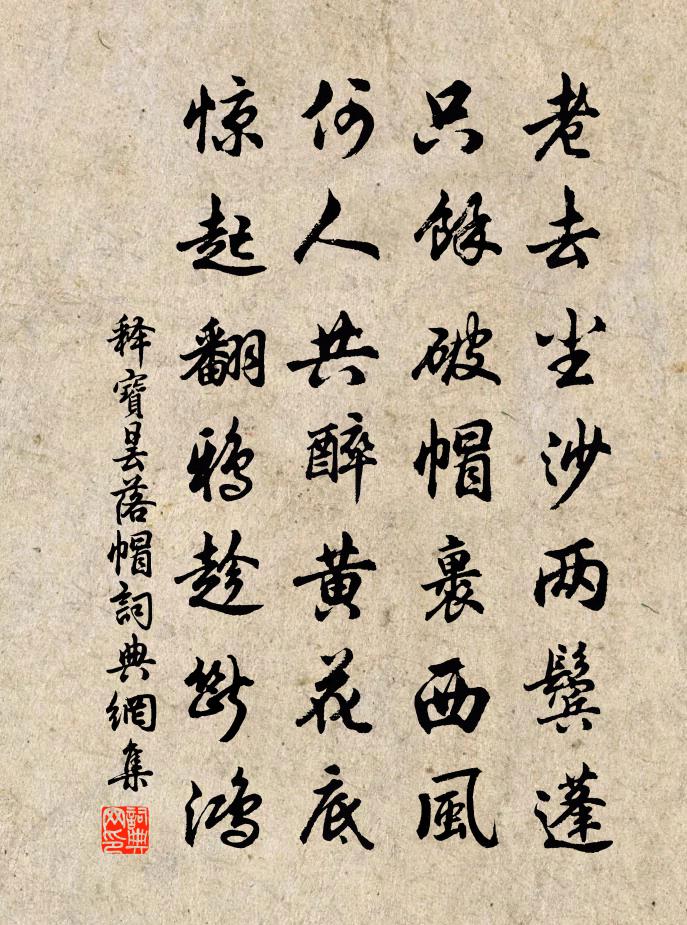 老去尘沙两鬓蓬
只餘破帽裹西風
何人共醉黄花底
惊起翻鸦趁断鸿
释寶昙落帽詞典網集
詞典网印